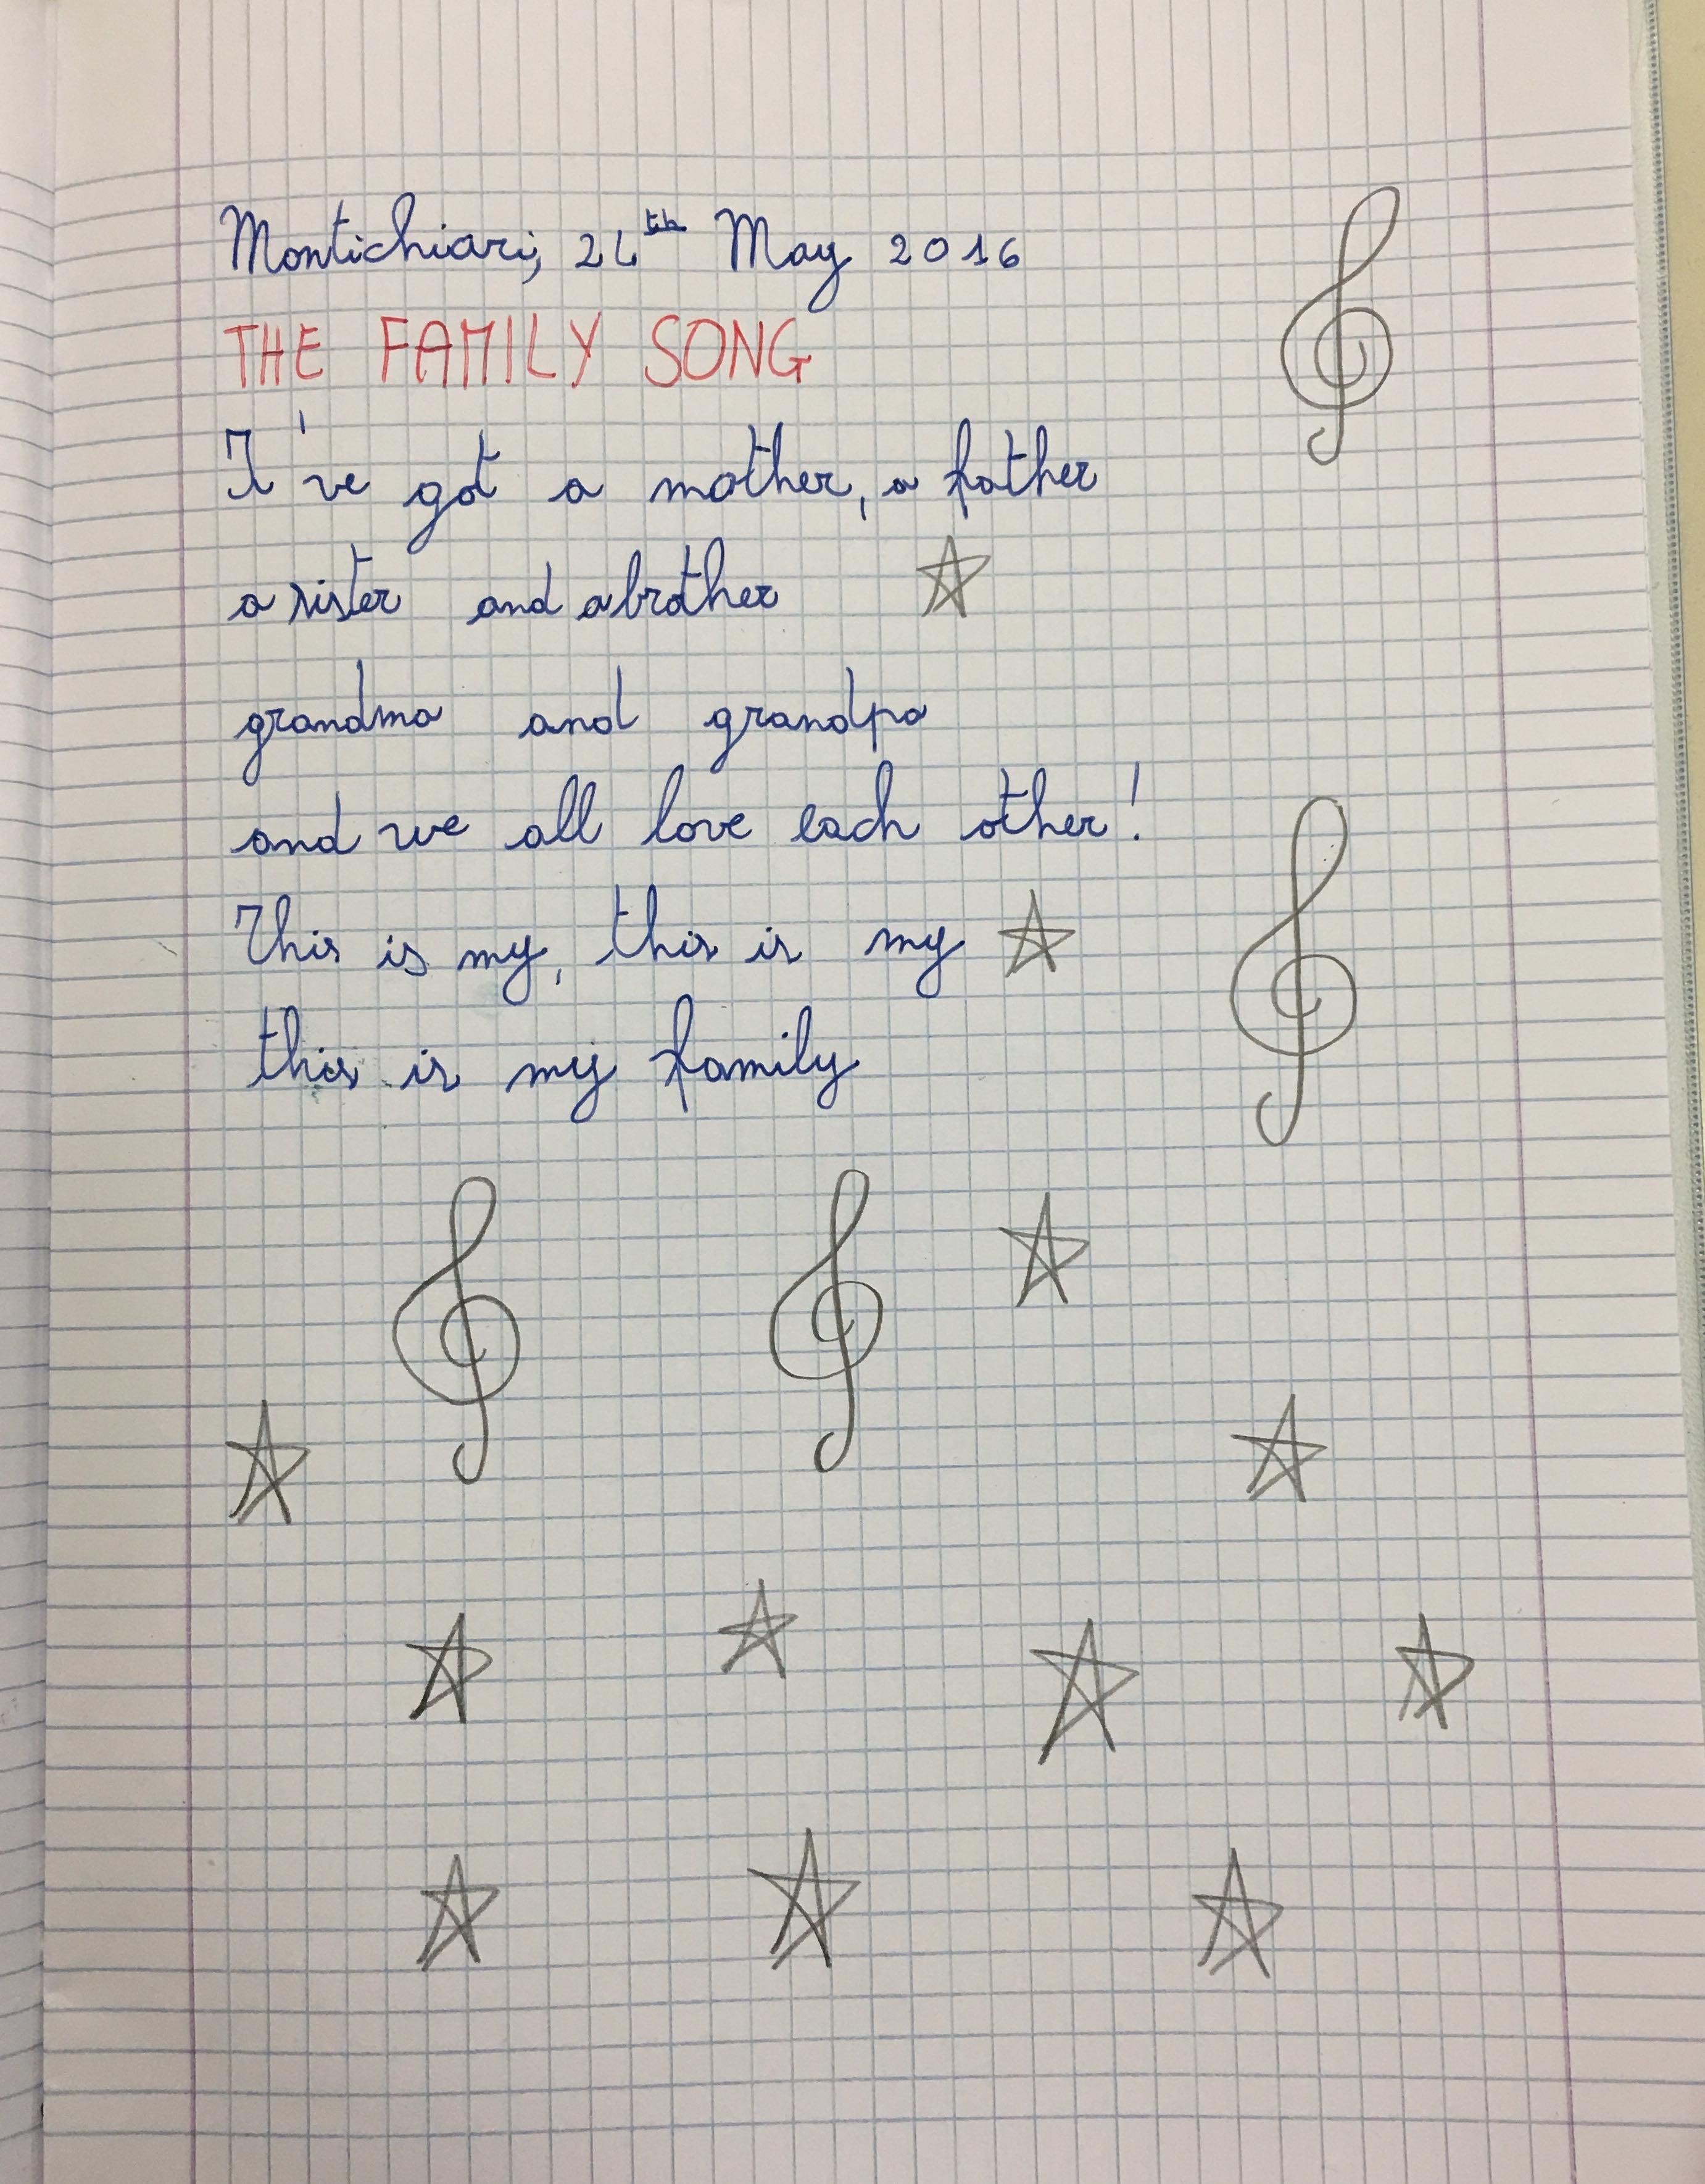 Montichiari, 24th May 2016
THE FAMILY SONG
I've got a mother, a father
a sister and a brother
grandma and grandpa
and we all love each other!
This is my, this is my
this is my family